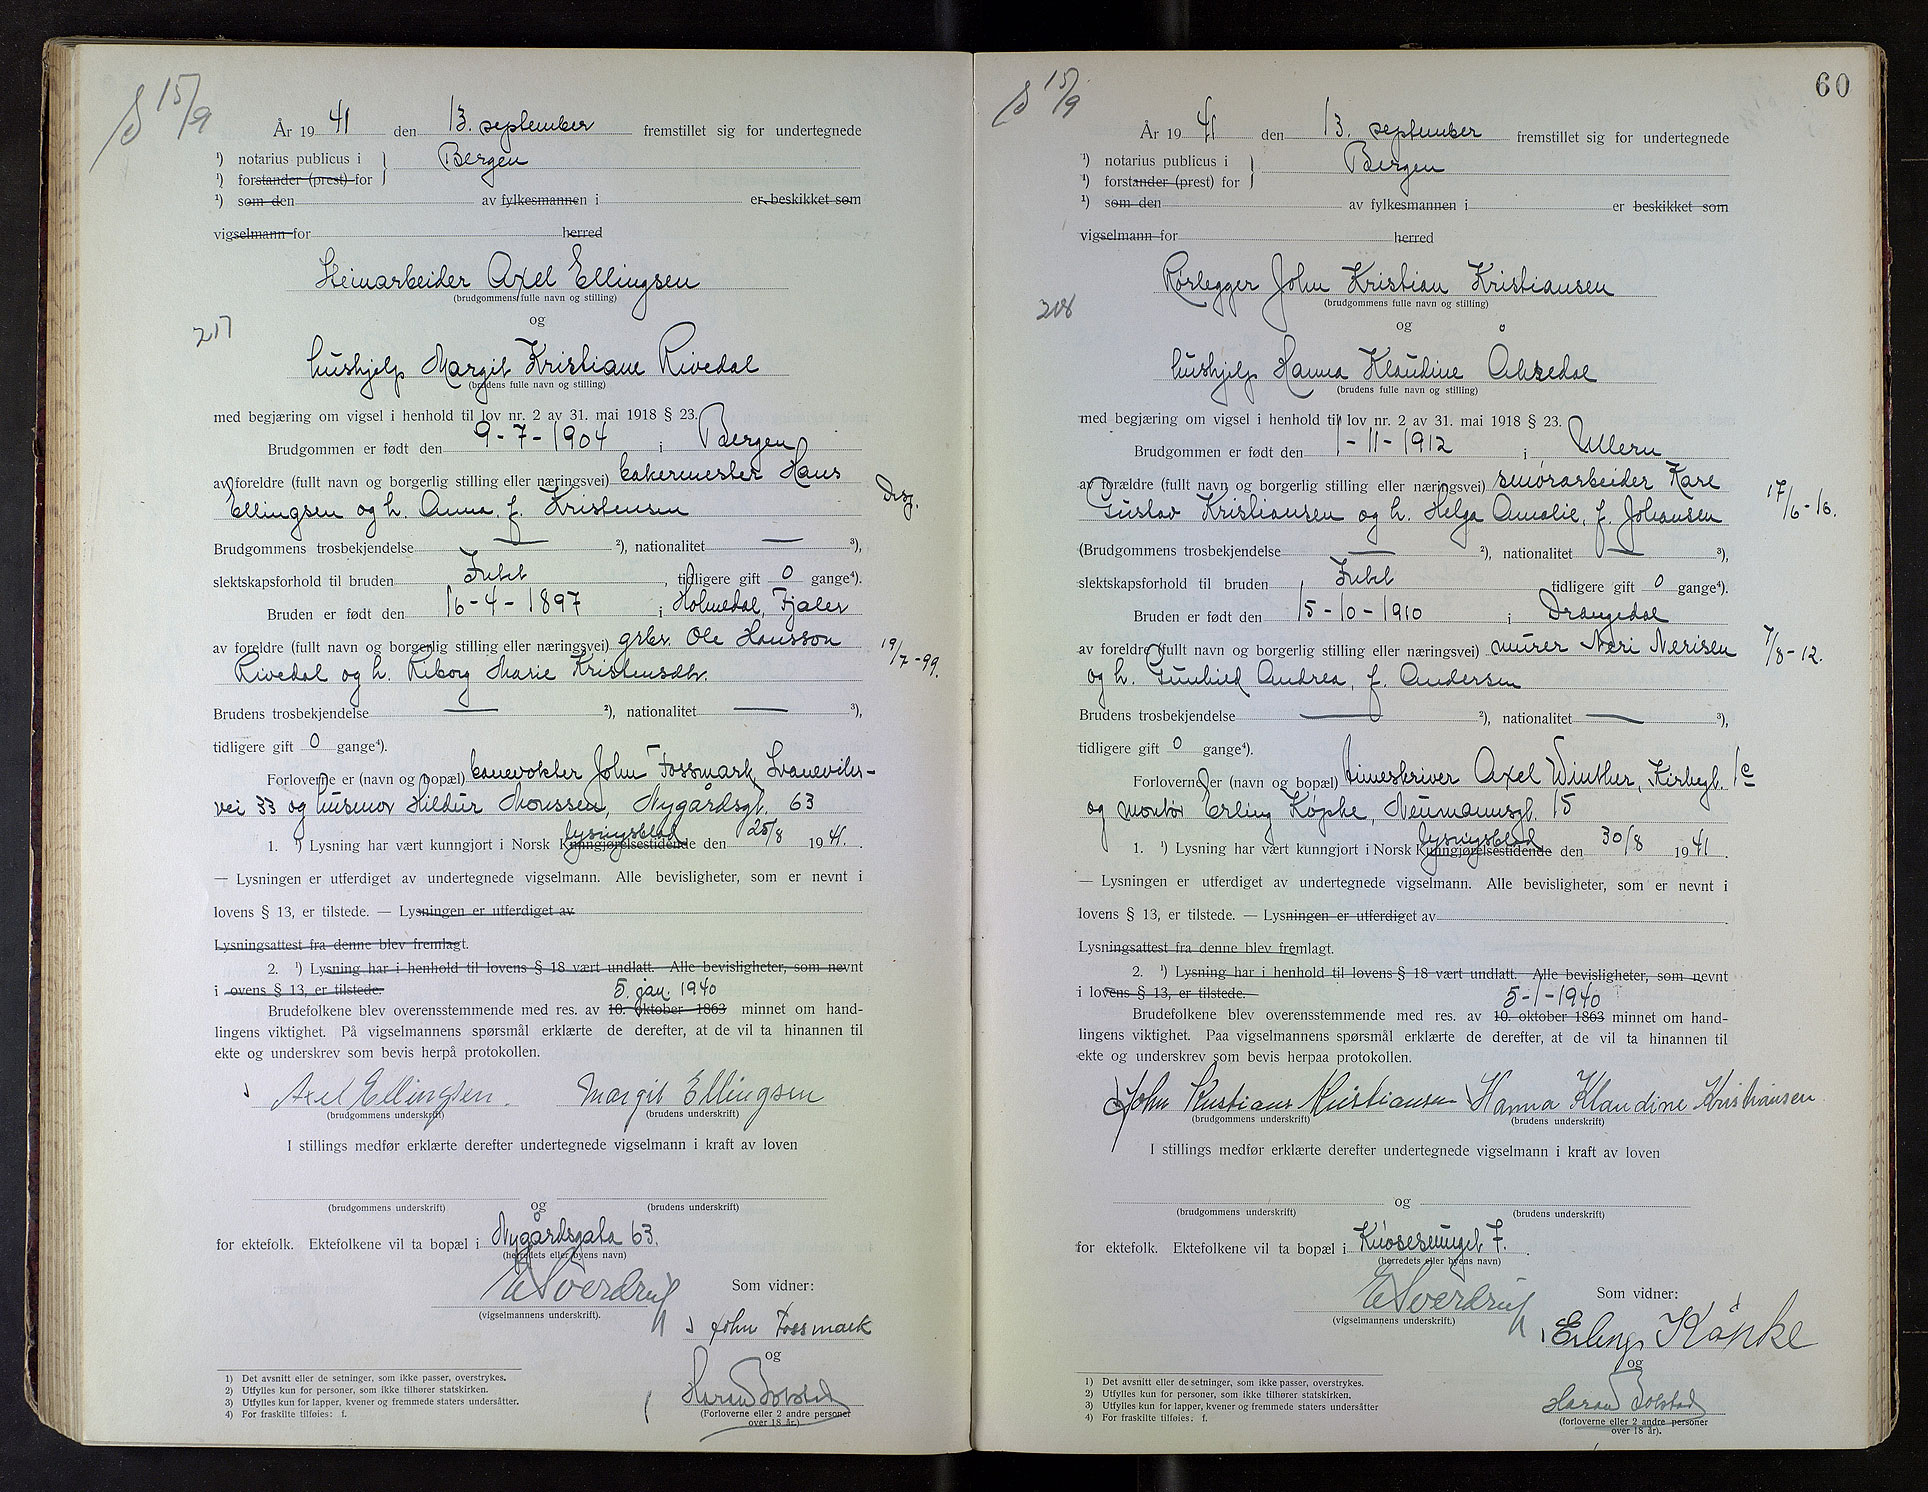 S 15/9
År 19 41 den 13. september fremstillet sig for undertegnede
¹) notarius publicus i } Bergen
¹) forstander (prest) for
¹) som den av fylkesmannen i er beskikket som
vigselmann for herred
Steinarbeider Axel Ellingsen
(brudgommens fulle navn og stilling)
217
og
hushjelp Margit Kristiane Rivedal
(brudens fulle navn og stilling)
med begjæring om vigsel i henhold til lov nr. 2 av 31. mai 1918 § 23.
Brudgommen er født den 9-7-1904 i Bergen
av foreldre (fullt navn og borgerlig stilling eller næringsvei) bakermester Hans
Ellingsen og h. Anna, f. Kristensen
Brudgommens trosbekjendelse — ²), nationalitet — ³),
slektskapsforhold til bruden Intet, tidligere gift 0 gange⁴).
Bruden er født den 16-4-1897 i Holmedal, Fjaler
av foreldre (fullt navn og borgerlig stilling eller næringsvei) grbr. Ole Hansson 19/7-99.
Rivedal og h. Riborg Marie Kristensdtr.
Brudens trosbekjendelse — ²), nationalitet — ³),
tidligere gift 0 gange⁴).
Forloverne er (navn og bopæl) banevokter John Fossmark, Svaneviks-
vei 33 og husmor Hildur Monssen, Nygårdsgt. 63
lysingsblad
1. ¹) Lysning har vært kunngjort i Norsk Kunngjørelsestidende den 25/8 1941.
— Lysningen er utferdiget av undertegnede vigselmann. Alle bevisligheter, som er nevnt i
lovens § 13, er tilstede. — Lysningen er utferdiget av
Lysningsattest fra denne blev fremlagt.
2. ¹) Lysning har i henhold til lovens § 18 vært undlatt. Alle bevisligheter, som nevnt
i lovens § 13, er tilstede.
5. jan. 1940
Brudefolkene blev overensstemmende med res. av 10. oktober 1863 minnet om hand-
lingens viktighet. På vigselmannens spørsmål erklærte de derefter, at de vil ta hinannen til
ekte og underskrev som bevis herpå protokollen.
Axel Ellingsen. Margit Ellingsen
(brudgommens underskrift) (brudens underskrift)
I stillings medfør erklærte derefter undertegnede vigselmann i kraft av loven
og
(brudgommens underskrift) (brudens underskrift)
for ektefolk. Ektefolkene vil ta bopæl i Nygårdsgata 63.
(herredets eller byens navn)
E Sverdrup Som vidner:
(vigselmannens underskrift).
John Fossmark
og
(Forloverne eller 2 andre personer
over 18 år.)
1) Det avsnitt eller de setninger, som ikke passer, overstrykes.
2) Utfylles kun for personer, som ikke tilhører statskirken.
3) Utfylles kun for lapper, kvener og fremmede staters undersåtter.
4) For fraskilte tilføies: f.
S 15/9
60
År 19 41 den 13. september fremstillet sig for undertegnede
¹) notarius publicus i } Bergen
¹) forstander (prest) for
¹) som den av fylkesmannen i er beskikket som
vigselmann for herred
Rørlegger John Kristian Kristiansen
(brudgommens fulle navn og stilling)
218
og
hushjelp Hanna Klaudine
(brudens fulle navn og stilling)
med begjæring om vigsel i henhold til lov nr. 2 av 31. mai 1918 § 23.
Brudgommen er født den 1-11-1912 i Ullern
av forældre (fullt navn og borgerlig stilling eller næringsvei) smørarbeider Kare 17/6-16.
Gustav Kristiansen og h. Helga Amalie, f. Johansen
(Brudgommens trosbekjendelse — ²), nationalitet — ³),
slektskapsforhold til bruden Intet tidligere gift 0 gange⁴).
Bruden er født den 15-10-1910 i Drangedal
av foreldre (fullt navn og borgerlig stilling eller næringsvei) murer Neri Nerisen 7/8-12.
og h. Gunhild Andrea, f. Andersen
Brudens trosbekjendelse — ²), nationalitet — ³),
tidligere gift 0 gange⁴).
Forloverne er (navn og bopæl) timeskriver Axel Winther, Kirkegt. 1c
og montør Erling Köpke, Neumannsgt. 15
lysingsblad
1. ¹) Lysning har vært kunngjort i Norsk Kunngjørelsestidende den 30/8 1941.
— Lysningen er utferdiget av undertegnede vigselmann. Alle bevisligheter, som er nevnt i
lovens § 13, er tilstede. — Lysningen er utferdiget av
Lysningsattest fra denne blev fremlagt.
2. ¹) Lysning har i henhold til lovens § 18 vært undlatt. Alle bevisligheter, som nevnt
i lovens § 13, er tilstede.
5-1-1940
Brudefolkene blev overensstemmende med res. av 10. oktober 1863 minnet om hand-
lingens viktighet. Paa vigselmannens spørsmål erklærte de derefter, at de vil ta hinannen til
ekte og underskrev som bevis herpaa protokollen.
John Kristians Kristiansen Hanna Klaudine Kristiansen
(brudgommens underskrift) (brudens underskrift)
I stillings medfør erklærte derefter undertegnede vigselmann i kraft av loven
og
(brudgommens underskrift) (brudens underskrift)
for ektefolk. Ektefolkene vil ta bopæl i 7.
(herredets eller byens navn)
E Sverdrup Som vidner:
(vigselmannens underskrift.)
Erling Köpke
og
(forloverne eller 2 andre personer
over 18 år).
1) Det avsnitt eller de setninger, som ikke passer, overstrykes.
2) Utfylles kun for personer, som ikke tilhører statskirken.
3) Utfylles kun for lapper, kvener og fremmede staters undersåtter
4) For fraskilte tilføies: f.